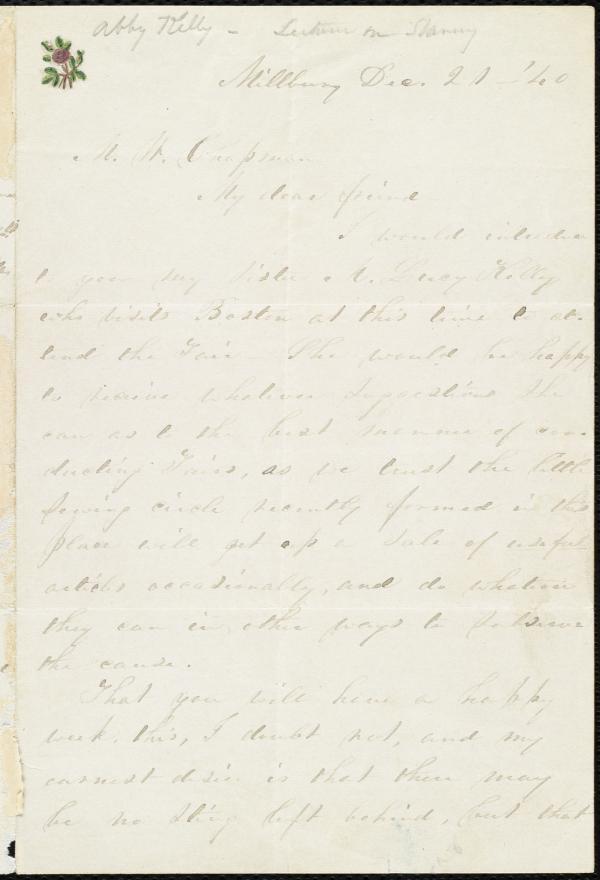 Abby Kelly - Lecture on Slavery
Millbury Dec. 21 - '40
M. W. Chapman
My dear friend
I would introduce
to you my sister M. Lucy Kelly
who visits Boston at this time to at-
tend the Fair - She would be happy
to receive whatever suggestions she
can as to the best manner of con-
ducting Fairs, as we trust the little
sewing circle recently formed in this
place will get up a sale of useful
articles occasionally, and do whatever
they can in other ways to subserve
the cause.
That you will have a happy
week, this, I doubt not, and my
earnest desire is that there may
be no sting left behind, but that